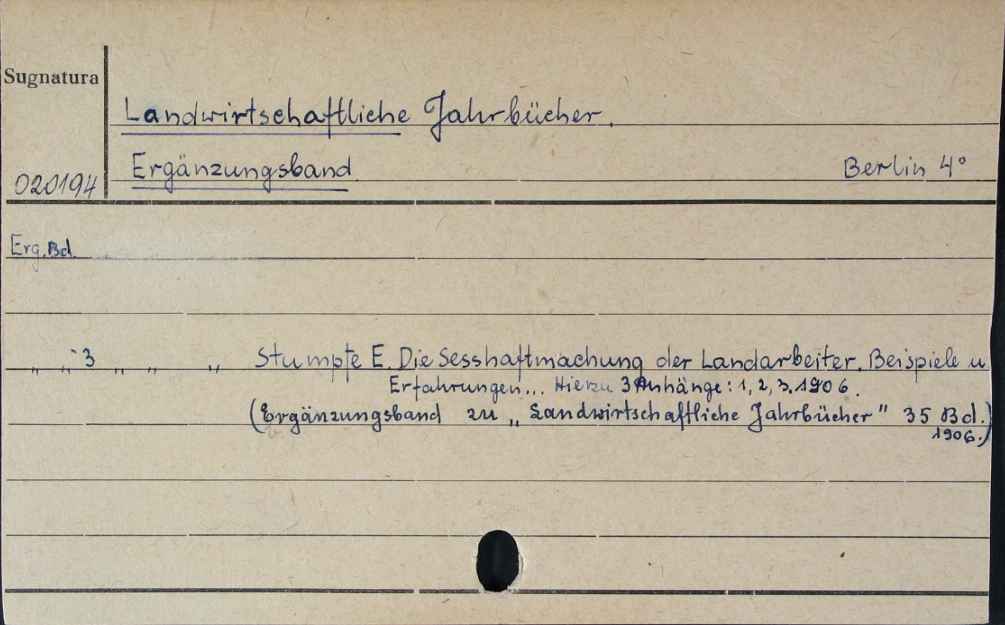 Sugnatura
Landwirtschaftliche Jahrbücher.
020194 Ergänzungsband Berlin 4°
Erg. Bd.
„ „ 3 „ „ „ Stumpfe E. Die Sesshaftmachung der Landarbeiter. Beispiele u
Erfahrungen... Hierzu 3 Anhänge: 1, 2, 3. 1906.
(Ergänzungsband zu „Landwirtschaftliche Jahrbücher" 35 Bd.
1906.)